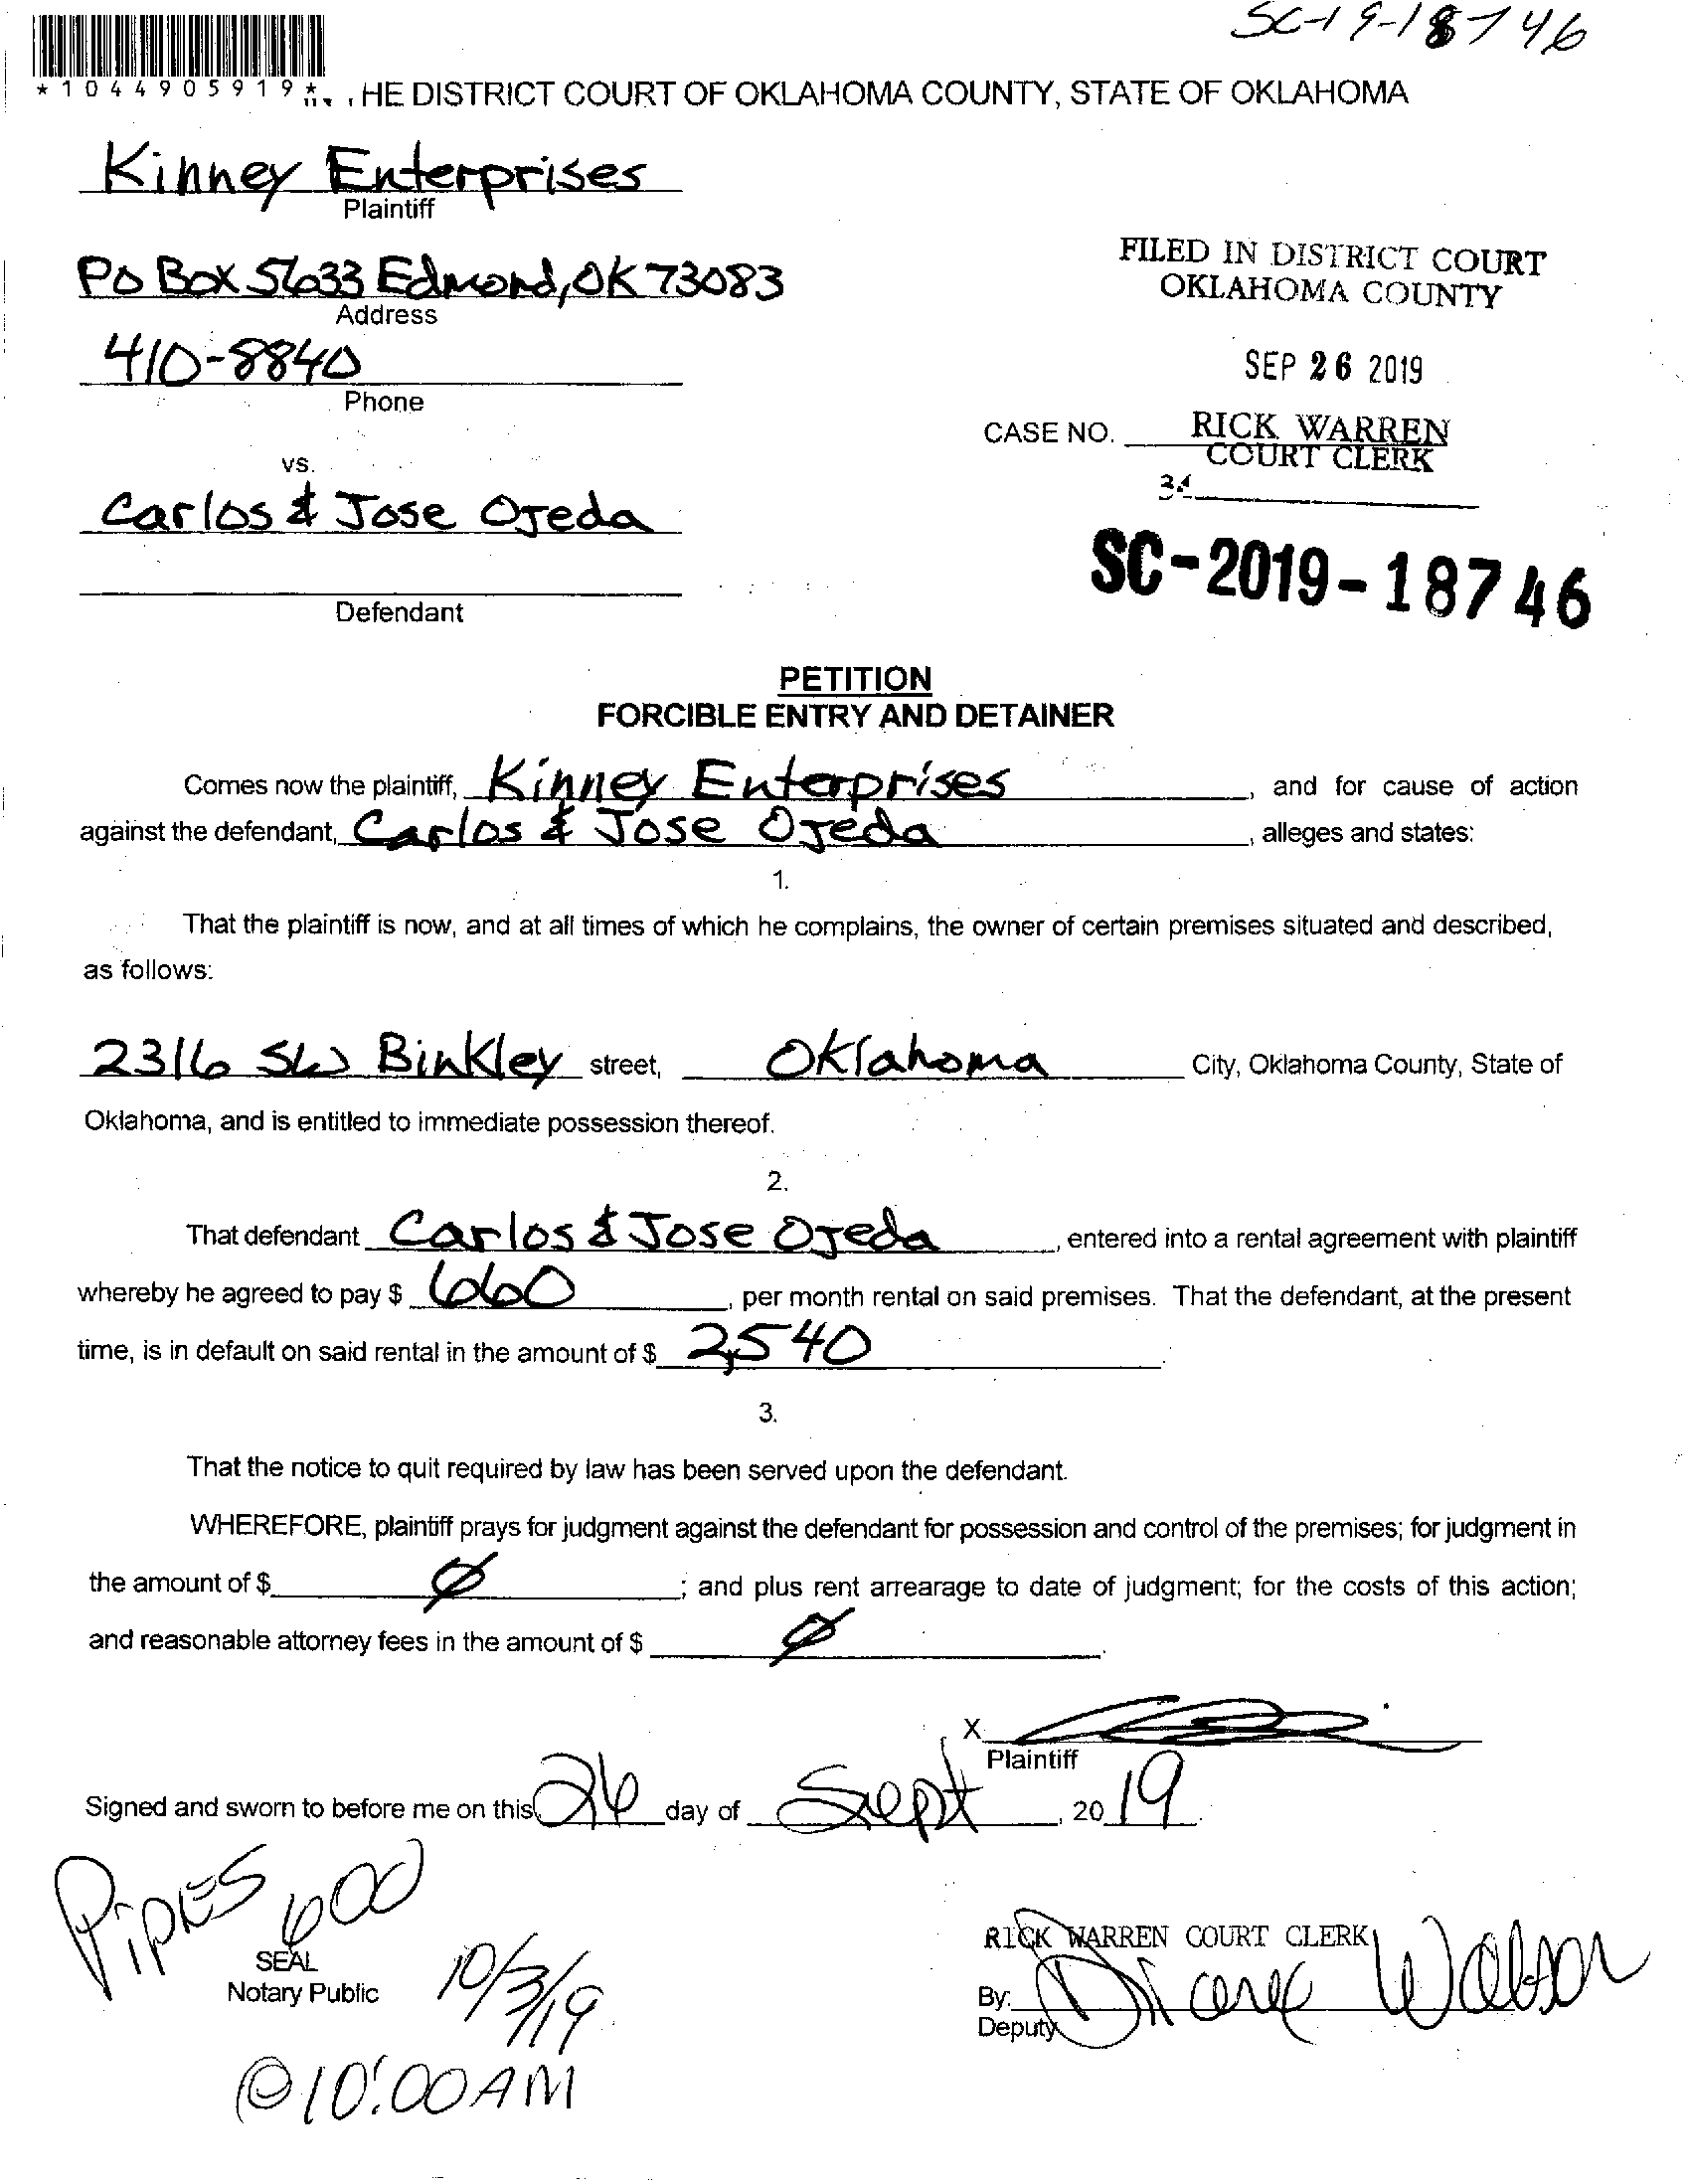 SC-19-18746
*1044905919*
HE DISTRICT COURT OF OKLAHOMA COUNTY, STATE OF OKLAHOMA
Kinney Enterprises
Plaintiff
PO Box 5633 Edmond, OK 73083
Address
410-8840
Phone
FILED IN DISTRICT COURT
OKLAHOMA COUNTY
SEP 26 2019
RICK WARREN
COURT CLERK
CASE NO.
vs.
Carlos & Jose Ojeda
Defendant
SC-2019-18746
PETITION
FORCIBLE ENTRY AND DETAINER
Comes now the plaintiff, Kinney Enterprises, and for cause of action
against the defendant, Carlos & Jose Ojeda, alleges and states:
1.
That the plaintiff is now, and at all times of which he complains, the owner of certain premises situated and described,
as follows:
2316 SW Binkley street, Oklahoma City, Oklahoma County, State of
Oklahoma, and is entitled to immediate possession thereof.
2.
That defendant Carlos & Jose Ojeda, entered into a rental agreement with plaintiff
whereby he agreed to pay $ 660, per month rental on said premises. That the defendant, at the present
time, is in default on said rental in the amount of $ 2,540.
3.
That the notice to quit required by law has been served upon the defendant.
WHEREFORE, plaintiff prays for judgment against the defendant for possession and control of the premises; for judgment in
the amount of $ Ø; and plus rent arrearage to date of judgment; for the costs of this action;
and reasonable attorney fees in the amount of $ Ø.
X
Plaintiff
Signed and sworn to before me on this 26 day of Sept, 2019.
Pipes 600
SEAL
Notary Public
10/3/19
@10:00AM
RICK WARREN COURT CLERK
By: Diane Watson
Deputy